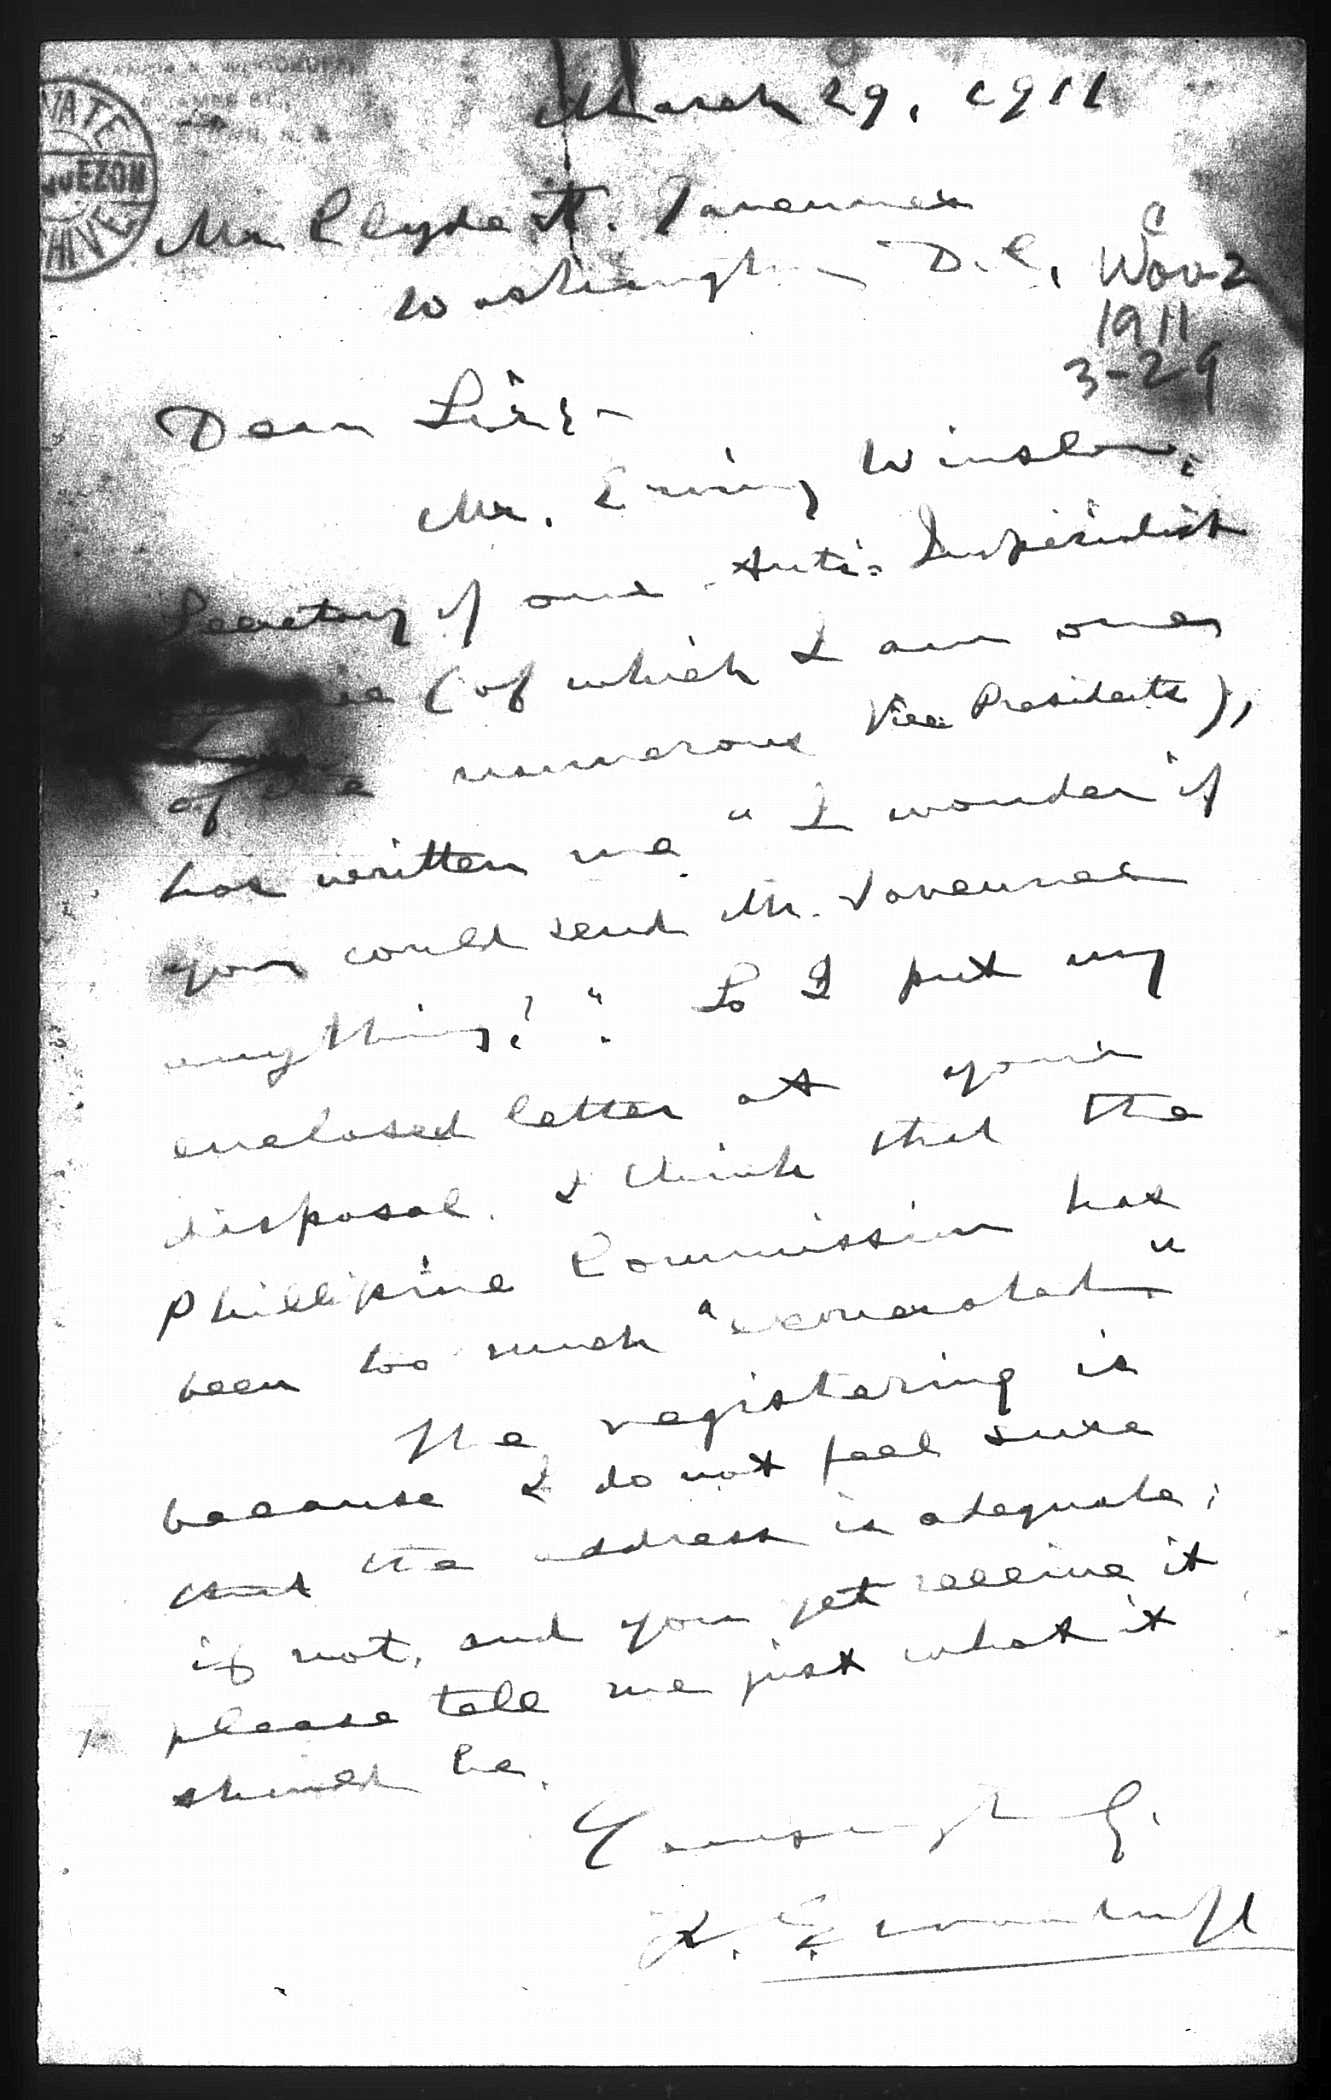 March 29, 1911
Mr Clyde H. Tavenner
Washington D.C.
C
Wov-2
1911
3-29
Dear Sir:-
Mr. Erving Winslow,
Secretary of our Anti-Imperialist
League (of which I am one
of the numerous Vice Presidents),
has written me "I wonder if
you could send Mr. Tavenner
anything?". So I put my
enclosed letter at your
disposal. I think that the
Phillipine Commission has
been too much "exonerated."
The registering is
because I do not feel sure
that the address is adequate;
if not, and you yet receive it
please tell me just what it
should be.
Yours